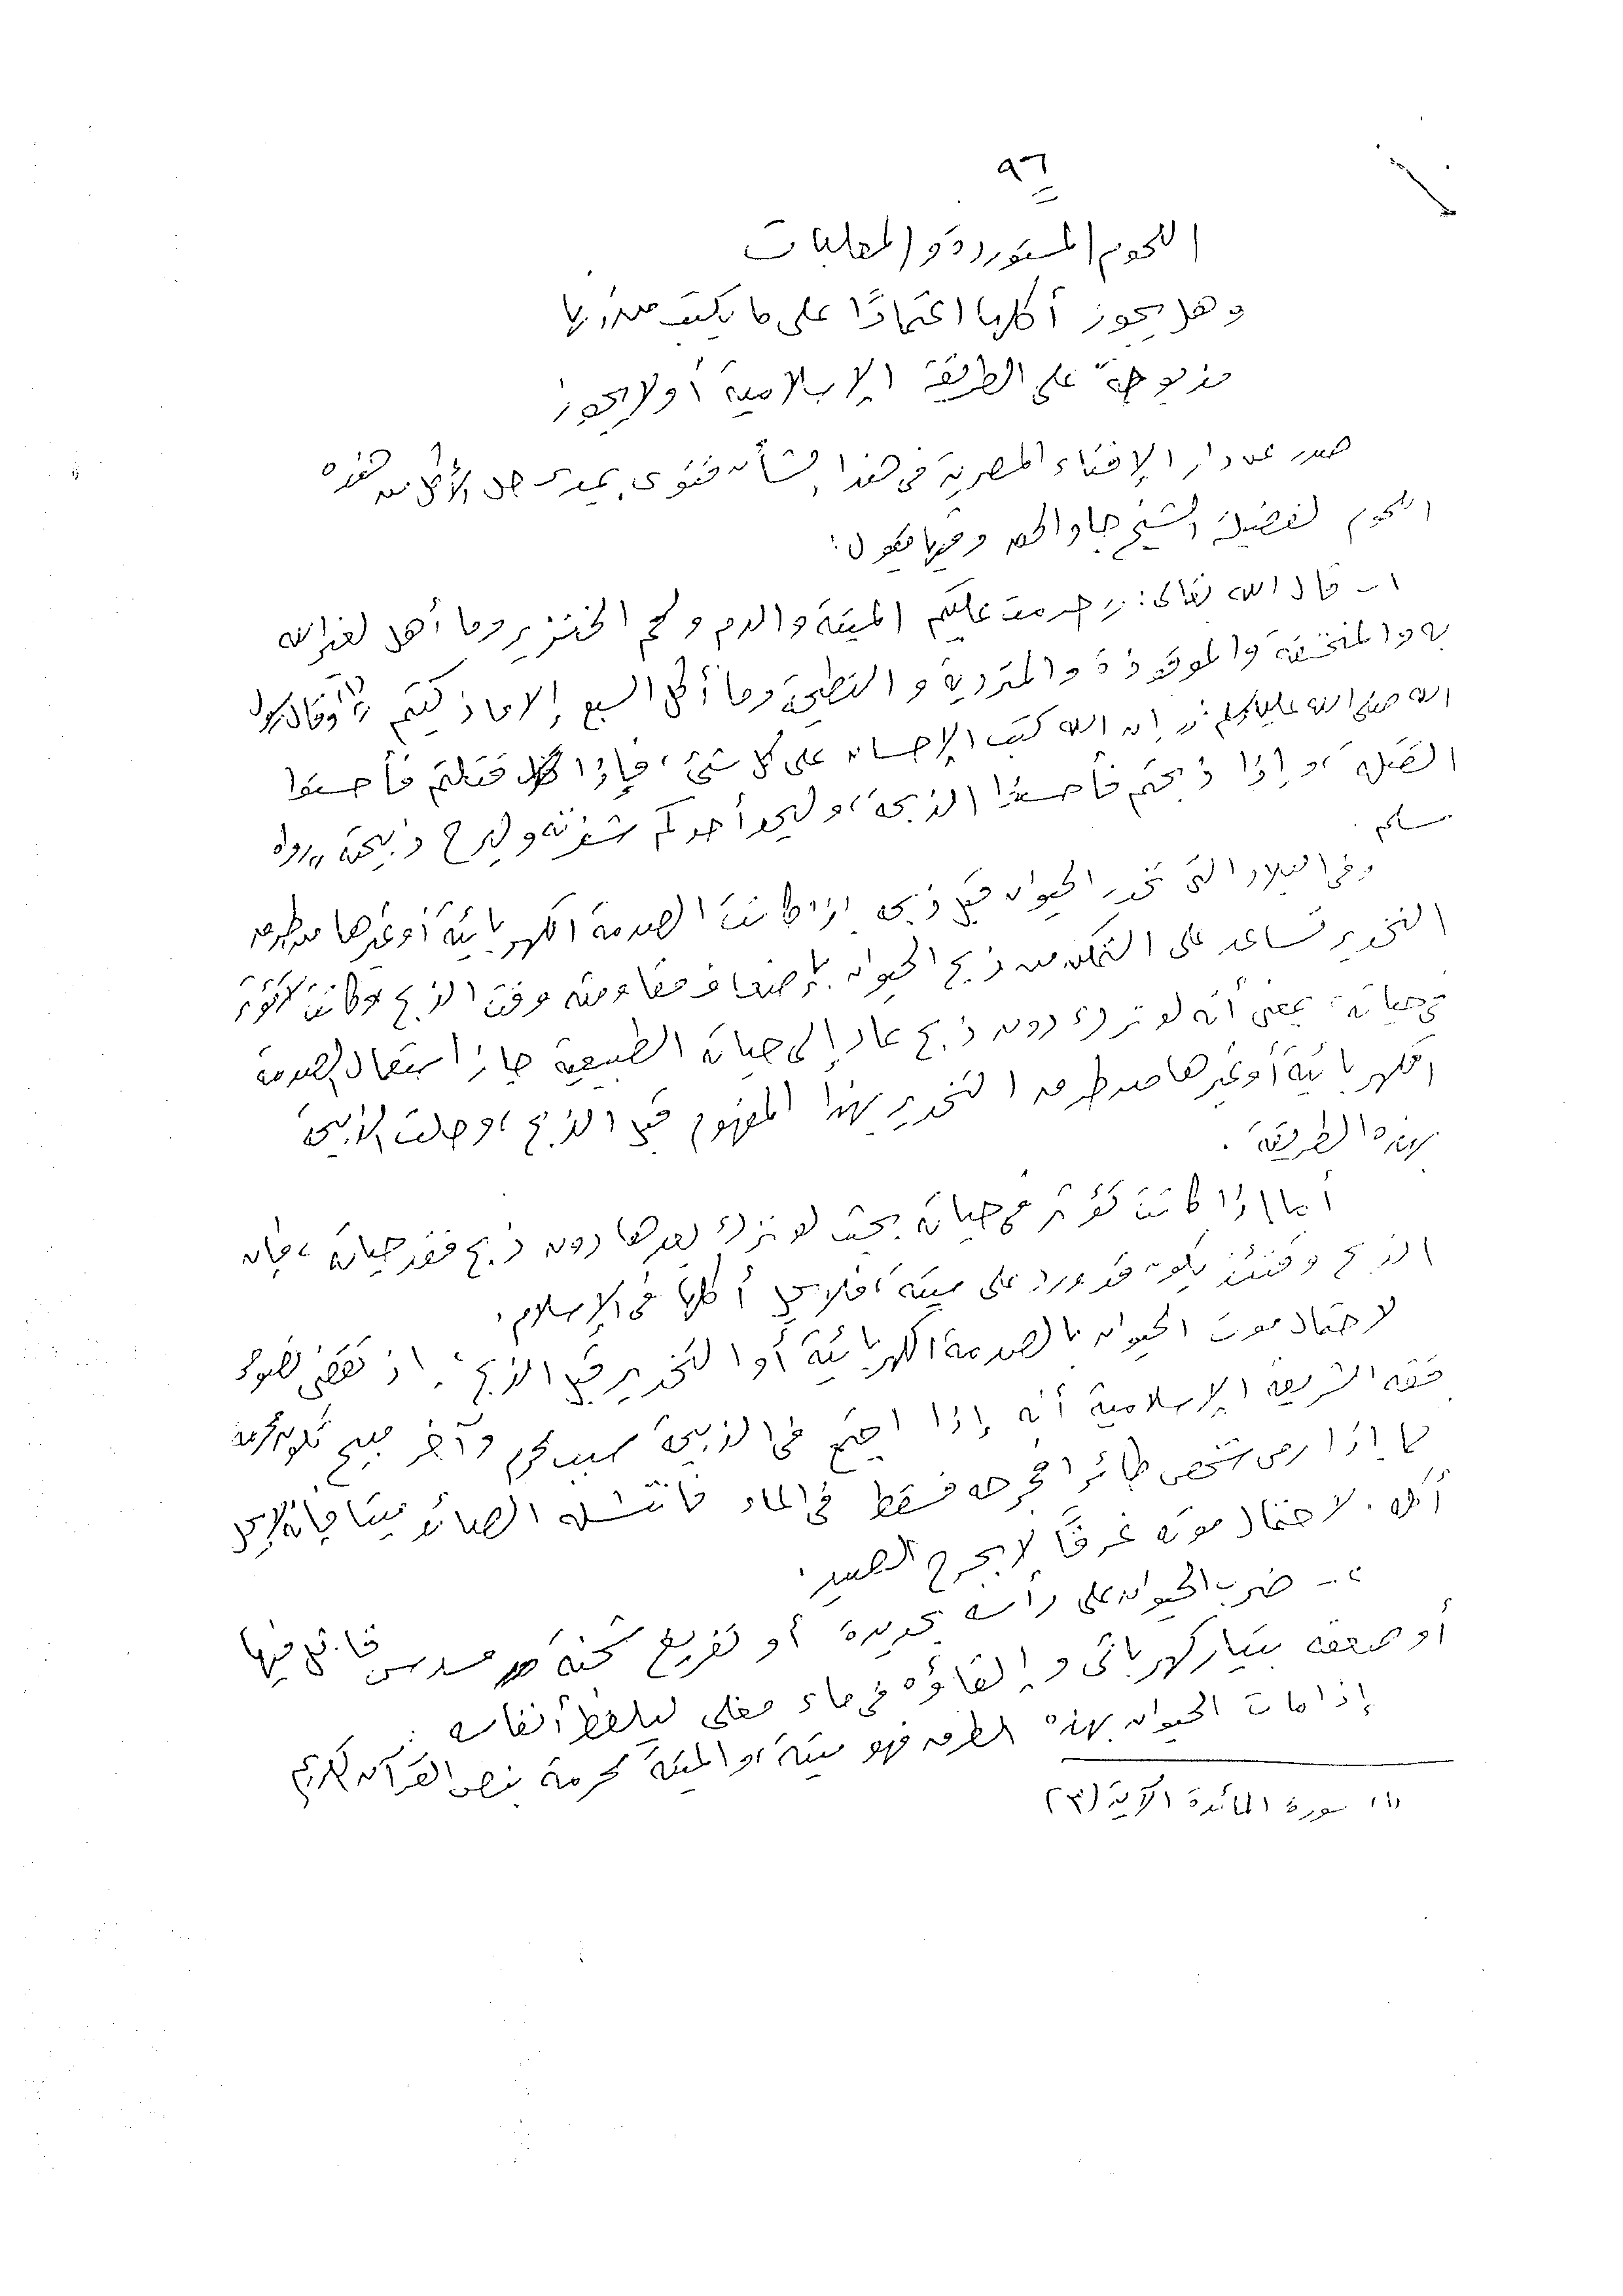 ٩٦
اللحوم المستوردة والمعلبات
وهل يجوز أكلها اعتمادًا على ما يكتب من أنها
مذبوحة على الطريقة الإسلامية أو لا يجوز
صدر عن دار الإفتاء المصرية فى هذا الشأن فتوى بمدى حل الأكل من هذه
اللحوم لفضيلة الشيخ جاد الحق وفيها يقول:
١- قال الله تعالى: "حرمت عليكم الميتة والدم ولحم الخنزير وما أهل لغير الله
به والمنخنقة والموقوذة والمتردية والنطيحة وما أكل السبع إلا ما ذكيتم" (١) وقال رسول
الله صلى الله عليه وسلم: "إن الله كتب الإحسان على كل شىء، فإذا قتلتم فأحسنوا
القتلة، وإذا ذبحتم فأحسنوا الذبحة، وليحد أحدكم شفرته وليرح ذبيحته" رواه
مسلم.
وفى البلاد التى تخدر الحيوان قبل ذبحه إذا كانت الصدمة الكهربائية أو غيرها من طرق
التخدير تساعد على التمكن من ذبح الحيوان بإضعاف مقاومته وقت الذبح وكانت لا تؤثر
فى حياته: بمعنى أنه لو ترك دون ذبح عاد إلى حياته الطبيعية جاز استعمال الصدمة
الكهربائية أو غيرها من طرق التخدير بهذا المفهوم قبل الذبح، وحلت الذبيحة
بهذه الطريقة.
أما إذا كانت تؤثر فى حياته بحيث لو ترك بعدها دون ذبح فقد حياته، فإن
الذبح وقتئذ يكون قد ورد على ميتة، فلا يحل أكلها فى الإسلام.
لاحتمال موت الحيوان بالصدمة الكهربائية أو التخدير قبل الذبح، إذ تقضى نصوص
فقه الشريعة الإسلامية أنه إذا اجتمع فى الذبيحة سبب محرم وآخر مبيح تكون محرمة
كما إذا رمى شخص طائرا فجرحه فسقط فى الماء فانتشله الصائد ميتا فإنه لا يحل
أكله. لاحتمال موته غرقًا لا بجرح الصيد.
٢- ضرب الحيوان على رأسه بحديدة أو تفريغ شحنة مسدس قاتل فيها
أو صعقه بتيار كهربائى وإلقاؤه فى ماء مغلى ليلفظ أنفاسه:
إذا مات الحيوان بهذه الطرق فهو ميتة، والميتة محرمة بنص القرآن الكريم
(١) سورة المائدة الآية (٣)